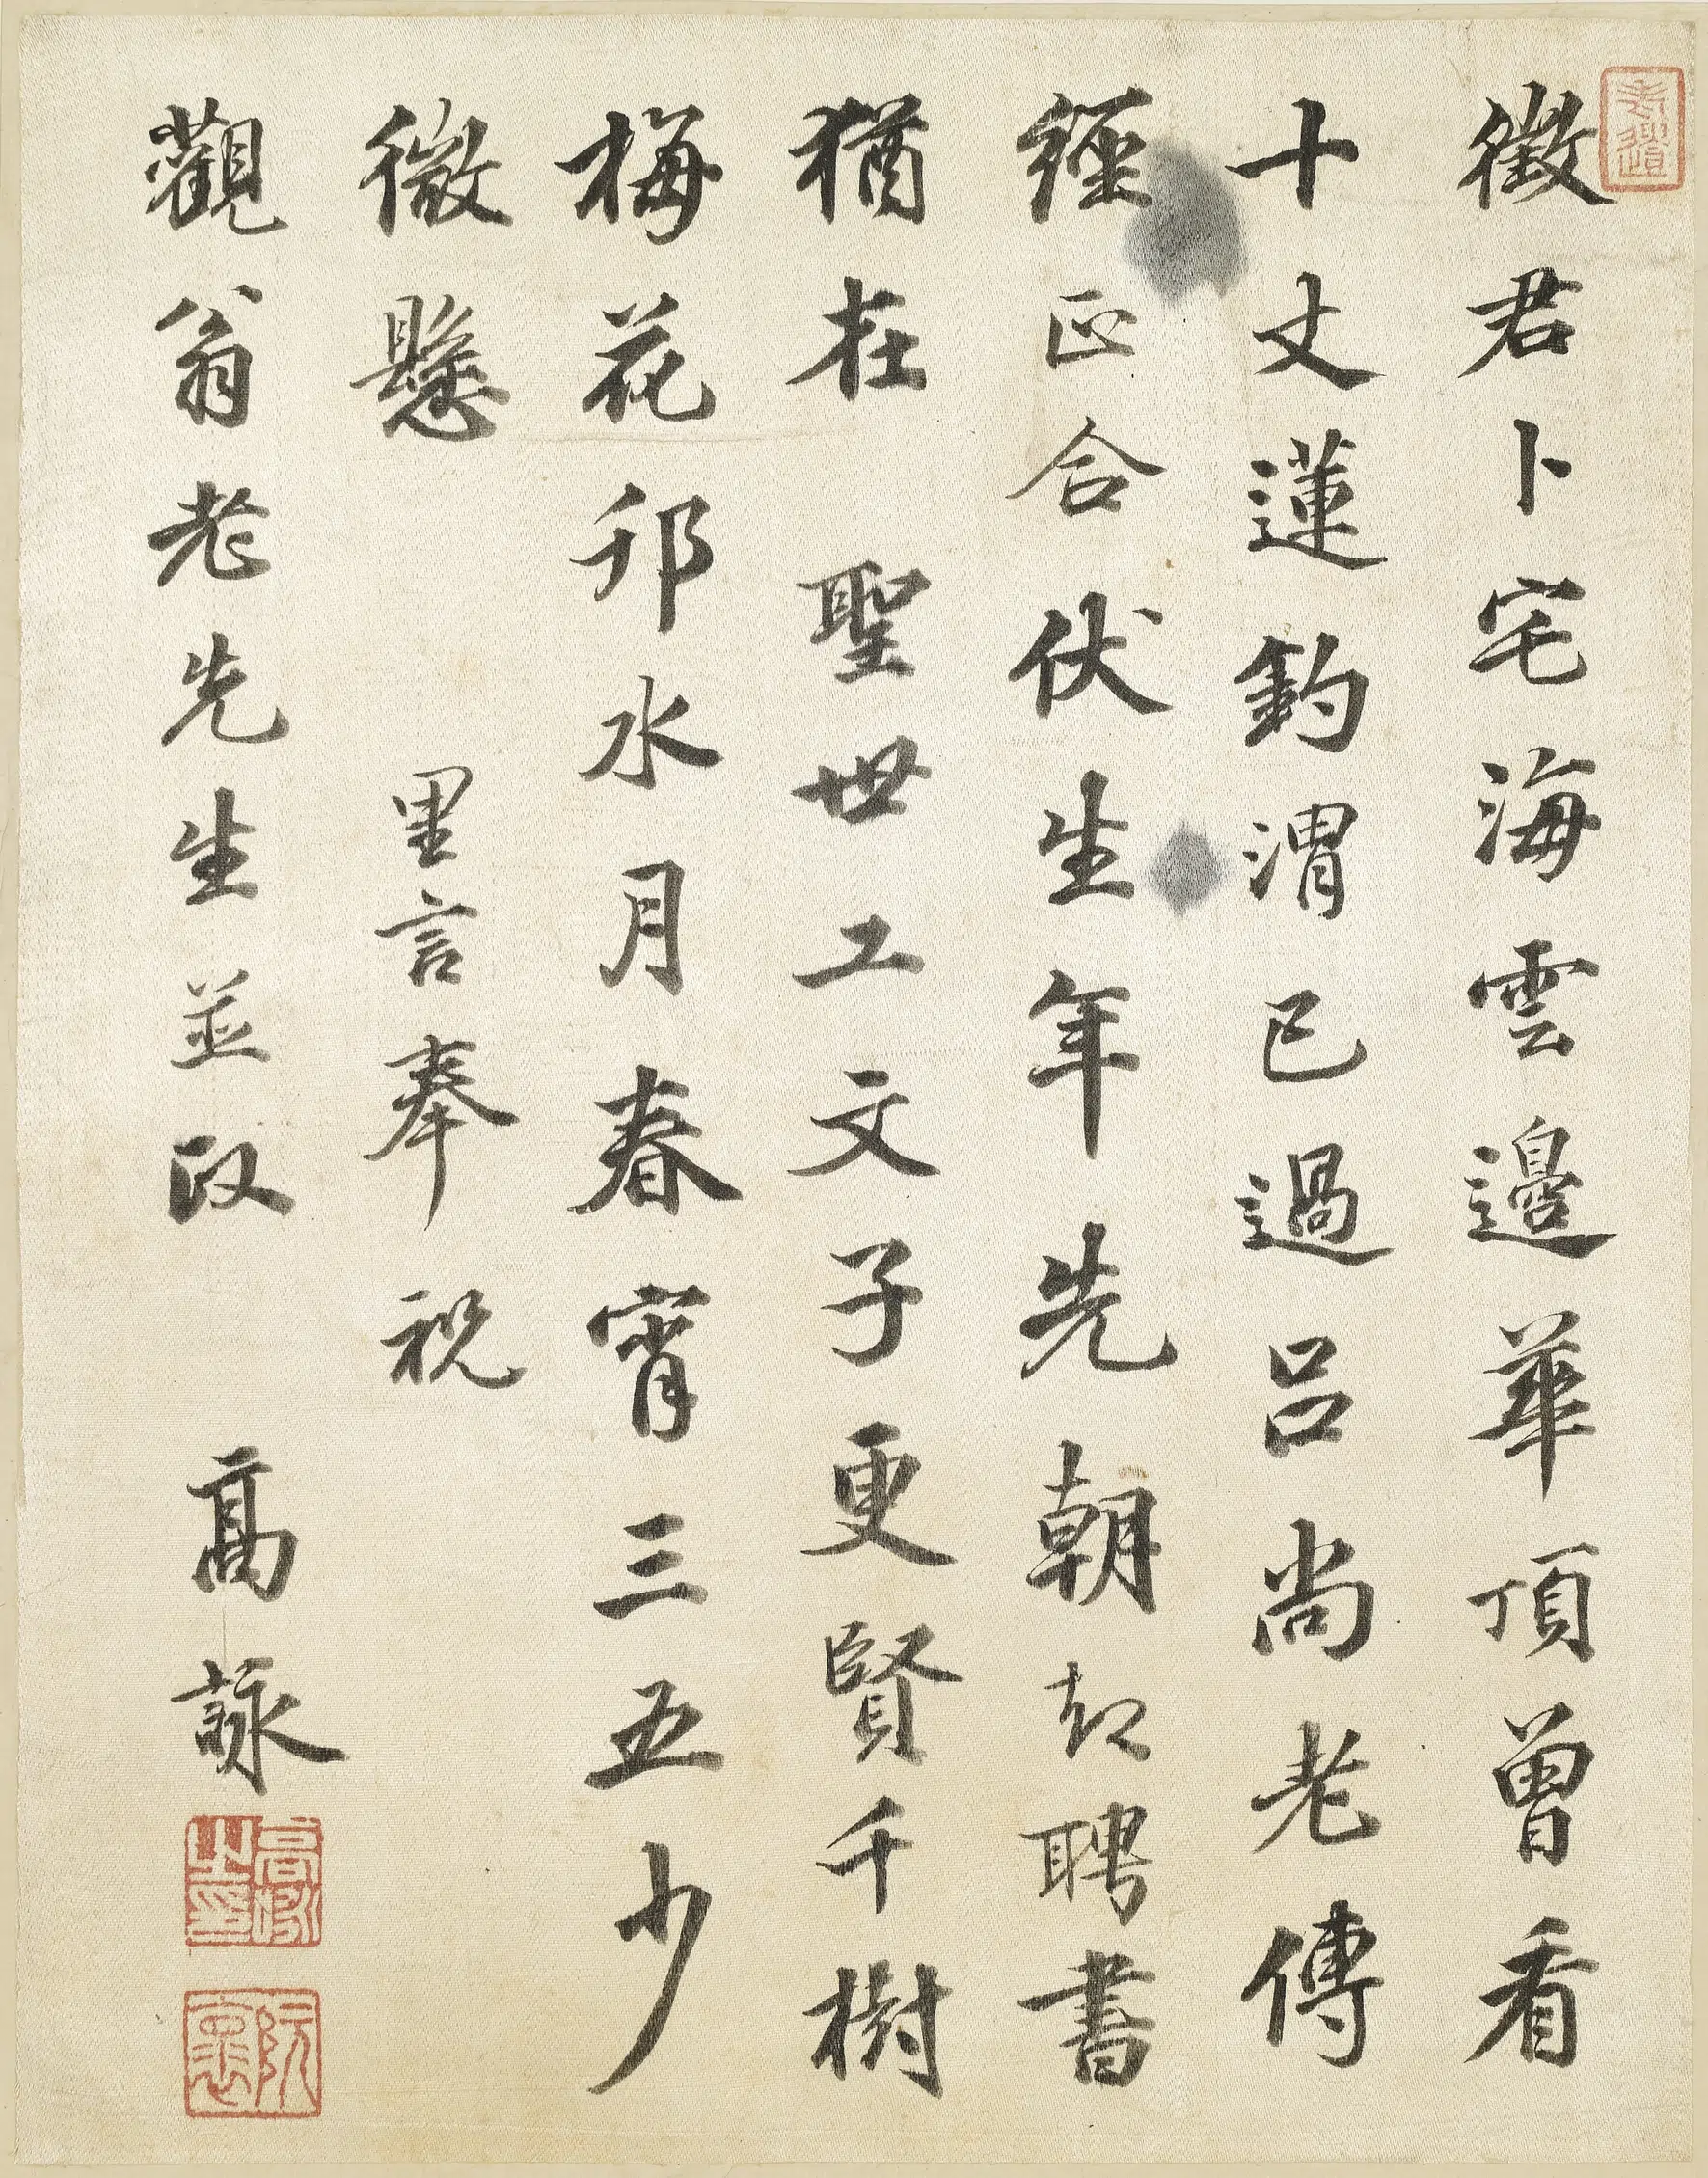 徵君卜宅海雲邊華頂曾看
十丈蓮釣渭已過呂尚老傳
經正合伏生年先朝却聘書
猶在聖世工文子更賢千樹
梅花邗水月春宵三五少
微懸
里言奉祝
觀翁老先生並政
高詠
高詠之印
阮懷